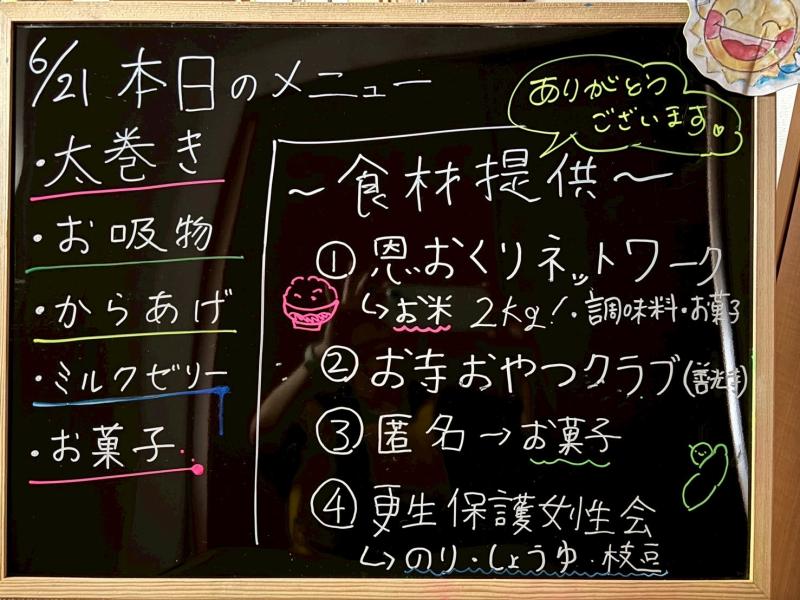 6/21 本日のメニュー
・太巻き
・お吸物
・からあげ
・ミルクゼリー
・お菓子
ありがとう
ございます
～食材提供～
① 恩おくりネットワーク
↳お米 2kg!・調味料・お菓子
② お寺おやつクラブ(善光寺)
③ 匿名→お菓子
④ 更生保護女性会
↳のり・しょうゆ・枝豆